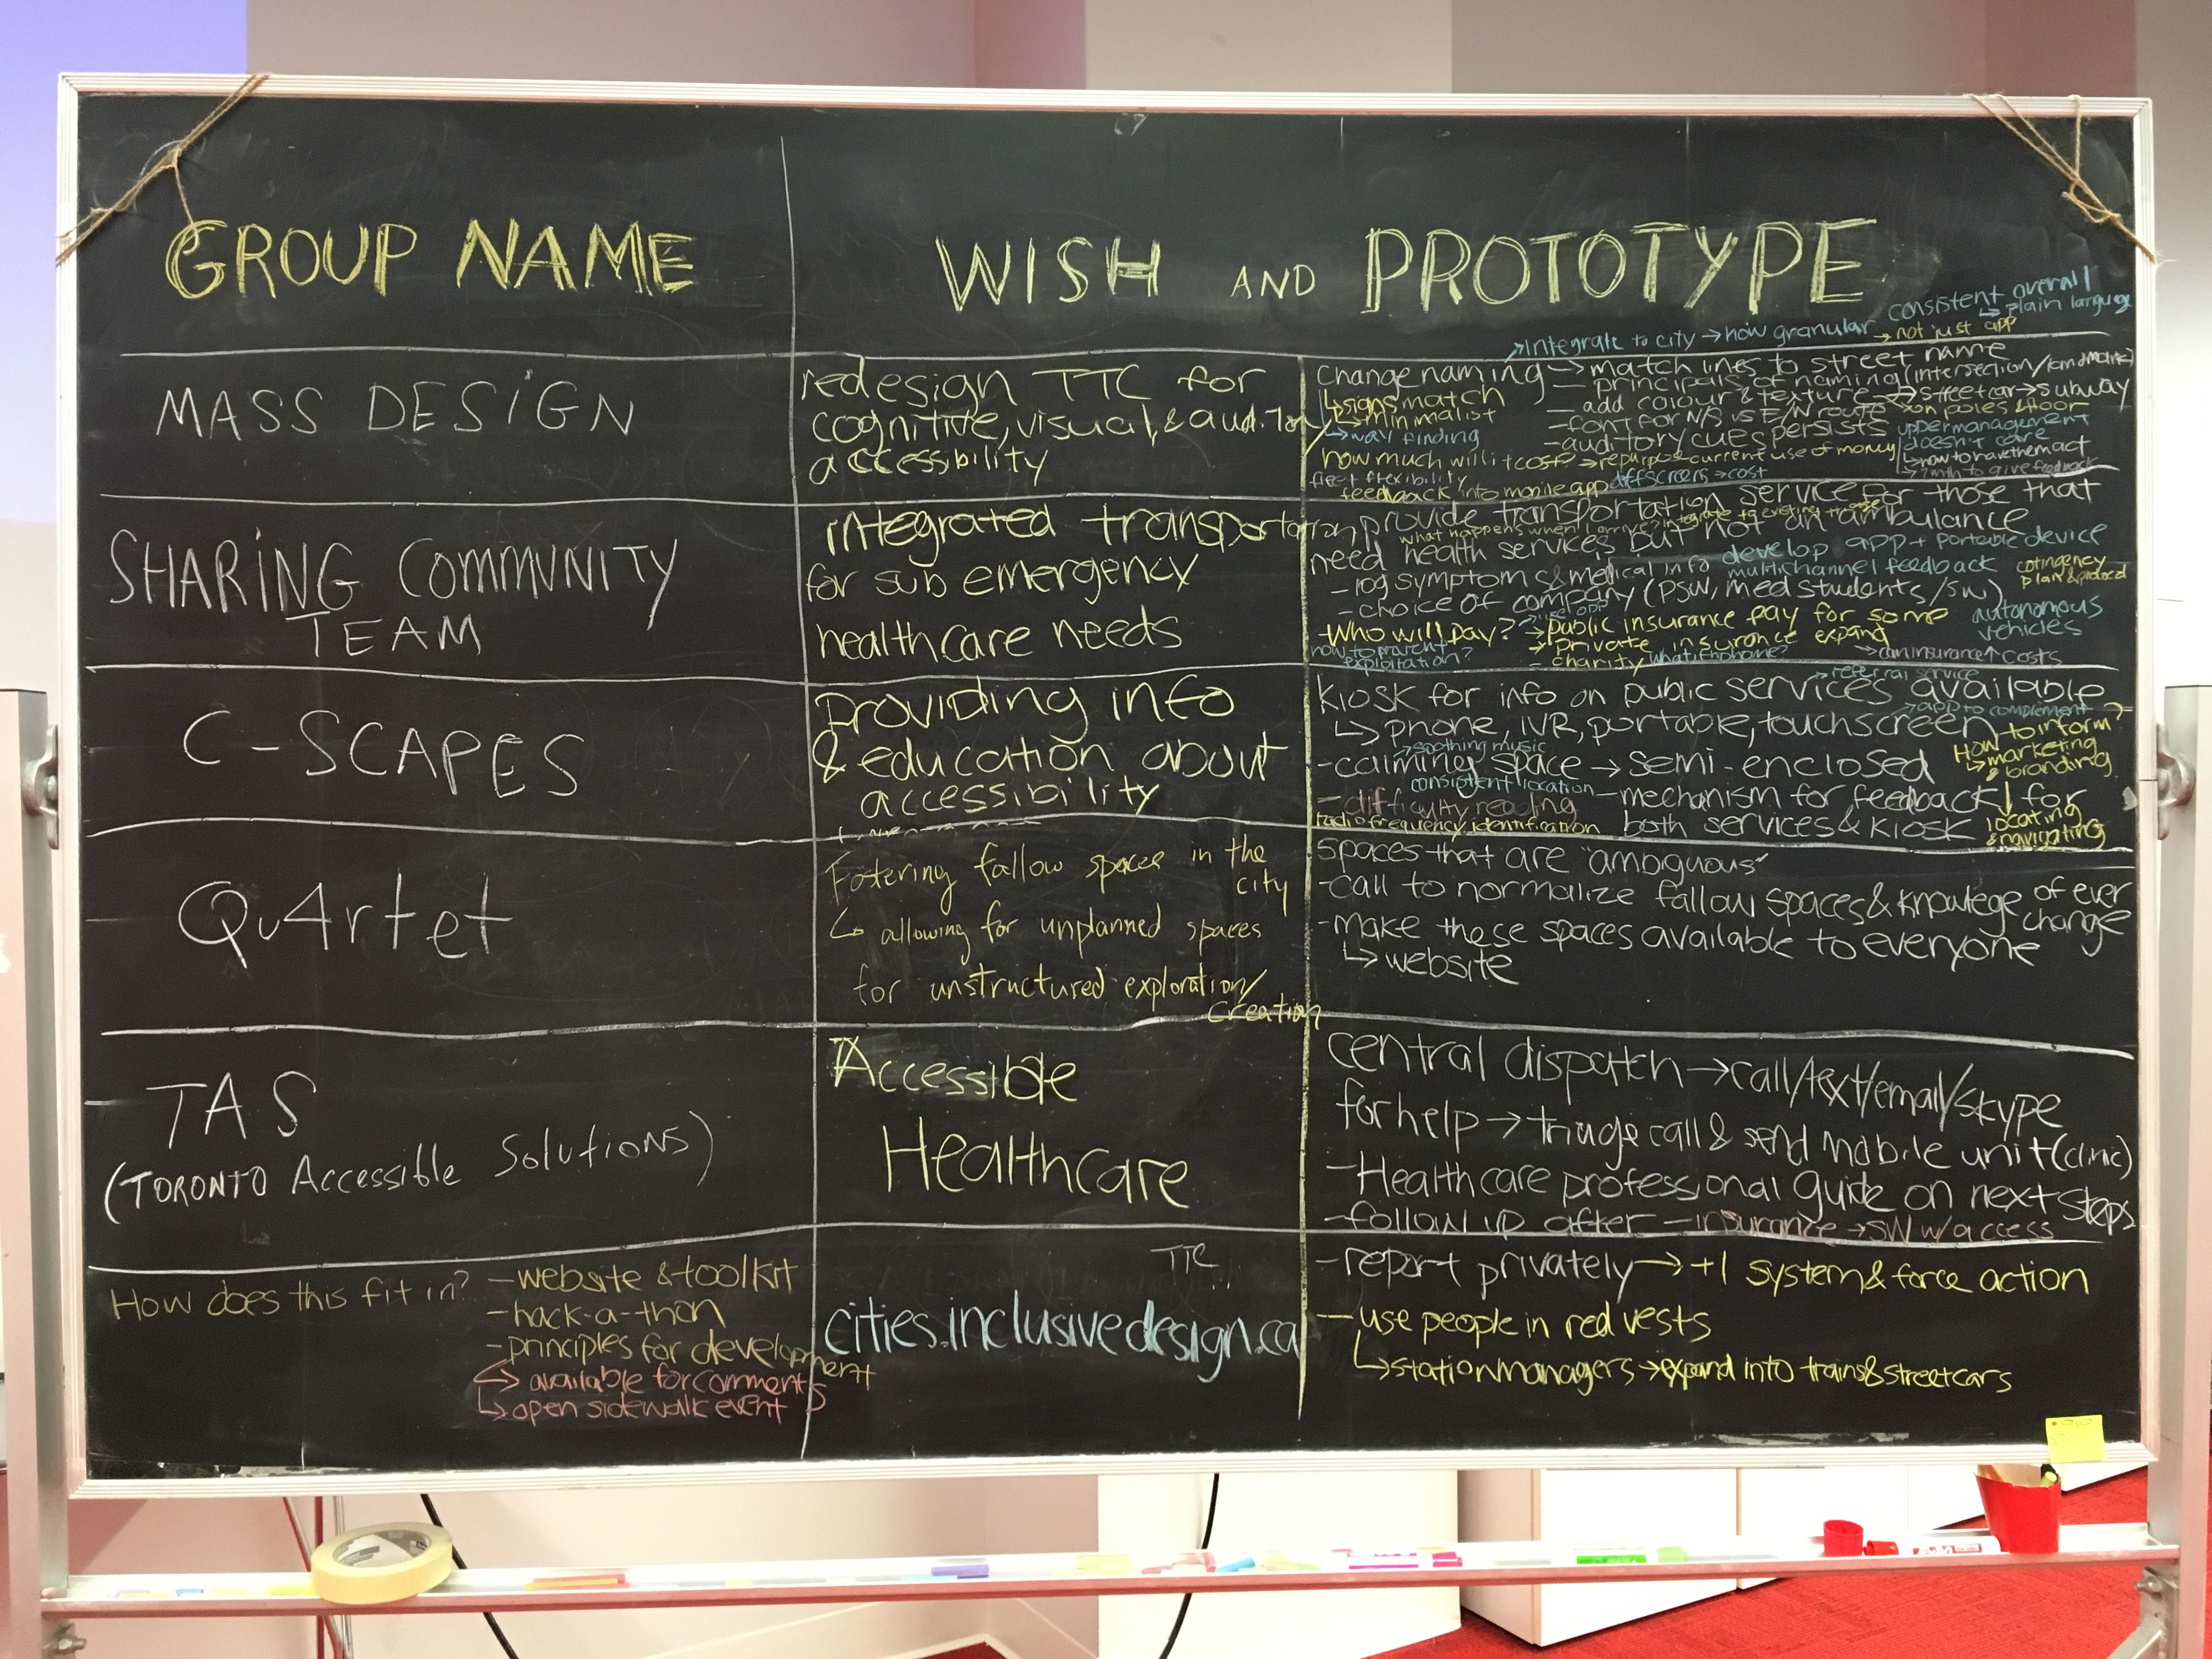 GROUP NAME
WISH AND PROTOTYPE
consistent overall
↳ plain language
↗Integrate to city → how granular
→ not just app
MASS DESiGN
redesign TTC for
cognitive, visual, & auditory
accessibility
Change naming → match lines to street name
— principals of naming (intersection/landmark)
↳ signs match
— add colour & texture → streetcar → subway
↳ minimalist
→ on poles & floor
— font for N/S vs E/W route
→ way finding
— auditory cues persists
upper management
doesn't care
how much will it cost? → repurpose current use of money
→ how to have them act
→ cost
fleet flexibility
feedback into mobile app
SHARiNG COMMUNITY
TEAM
integrated transportation
for sub emergency
healthcare needs
provide transportation service for those that
what happens when I arrive? integrate to existing
need health services but not an ambulance
develop app + portable device
- log symptoms & medical info
multichannel feedback
cotingency
plan & protocol
- choice of company (PSW, med students/SW)
- Who will pay? → public insurance pay for some
autonomous
vehicles
→ private insurance expand
how to prevent
exploitation?
- charity
what if no phone?
→ can insurance ↑ costs
C-SCAPES
providing info
& education about
accessibility
→ referral service
kiosk for info on public services available
→ app to complement
↳ phone, IVR, portable, touchscreen
How to inform?
↳ marketing
& branding
→ soothing music
- calming space → semi-enclosed
consistent location
- difficulty reading
- mechanism for feedback for
both services & kiosk
radio frequency identification
locating
& navigating
Qu4rtet
Fostering fallow spaces in the
city
↳ allowing for unplanned spaces
for unstructured exploration/
creation
spaces that are "ambiguous"
- call to normalize fallow spaces & knowlege of ever
change
- make these spaces available to everyone
↳ website
TAS
(TORONTO Accessible Solutions)
Accessible
Healthcare
central dispatch → call/text/email/skype
for help → triage call & send mobile unit (clinic)
- Healthcare professional guide on next steps
- follow up after - insurance → SW w/ access
How does this fit in?
- website & toolkit
- hack-a-thon
- principles for development
↳ available for comments
↳ open sidewalk event
TTC
cities.inclusivedesign.ca
- report privately → +1 system & force action
- use people in red vests
↳ station managers → expand into trains & streetcars